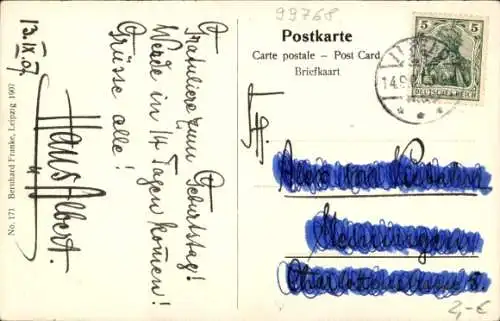 99768
13.IX.07.
Gratuliere zum Geburtstag!
Werde in 14 Tagen kommen!
Grüsse alle!
Hans Albert.
No. 171 Bernhard Franke, Leipzig 1907
Postkarte
Carte postale – Post Card
Briefkaart
5 5
DEUTSCHES REICH
14.9.
Meiningen
2,-€